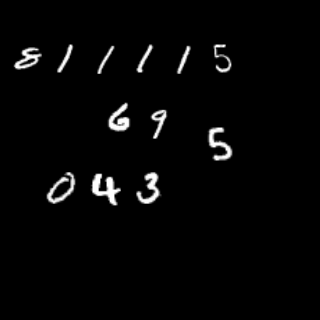 811115
69
5
043